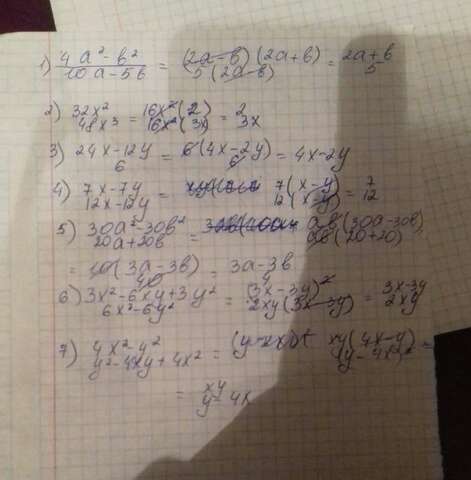 1) (4a² - b²)/(10a - 5b) = ((2a - b)(2a + b))/(5(2a - b)) = (2a + b)/5
2) 32x²/48x³ = 16x²(2)/16x²(3x) = 2/3x
3) (24x - 12y)/6 = 6(4x - 2y)/6 = 4x - 2y
4) (7x - 7y)/(12x - 12y) = 7(x - y)/12(x - y) = 7/12
5) (30a² - 30b²)/(20a + 20b) = ab(30a - 30b)/ab(20 + 20)
= 10(3a - 3b)/40 = (3a - 3b)/4
6) (3x² - 6xy + 3y²)/(6x² - 6y²) = (3x - 3y)²/2xy(3x - 3y) = (3x - 3y)/2xy
7) (4x² - y²)/(y² - 4xy + 4x²) = xy(4x - y)/(y - 4x)² =
= xy/(y - 4x)